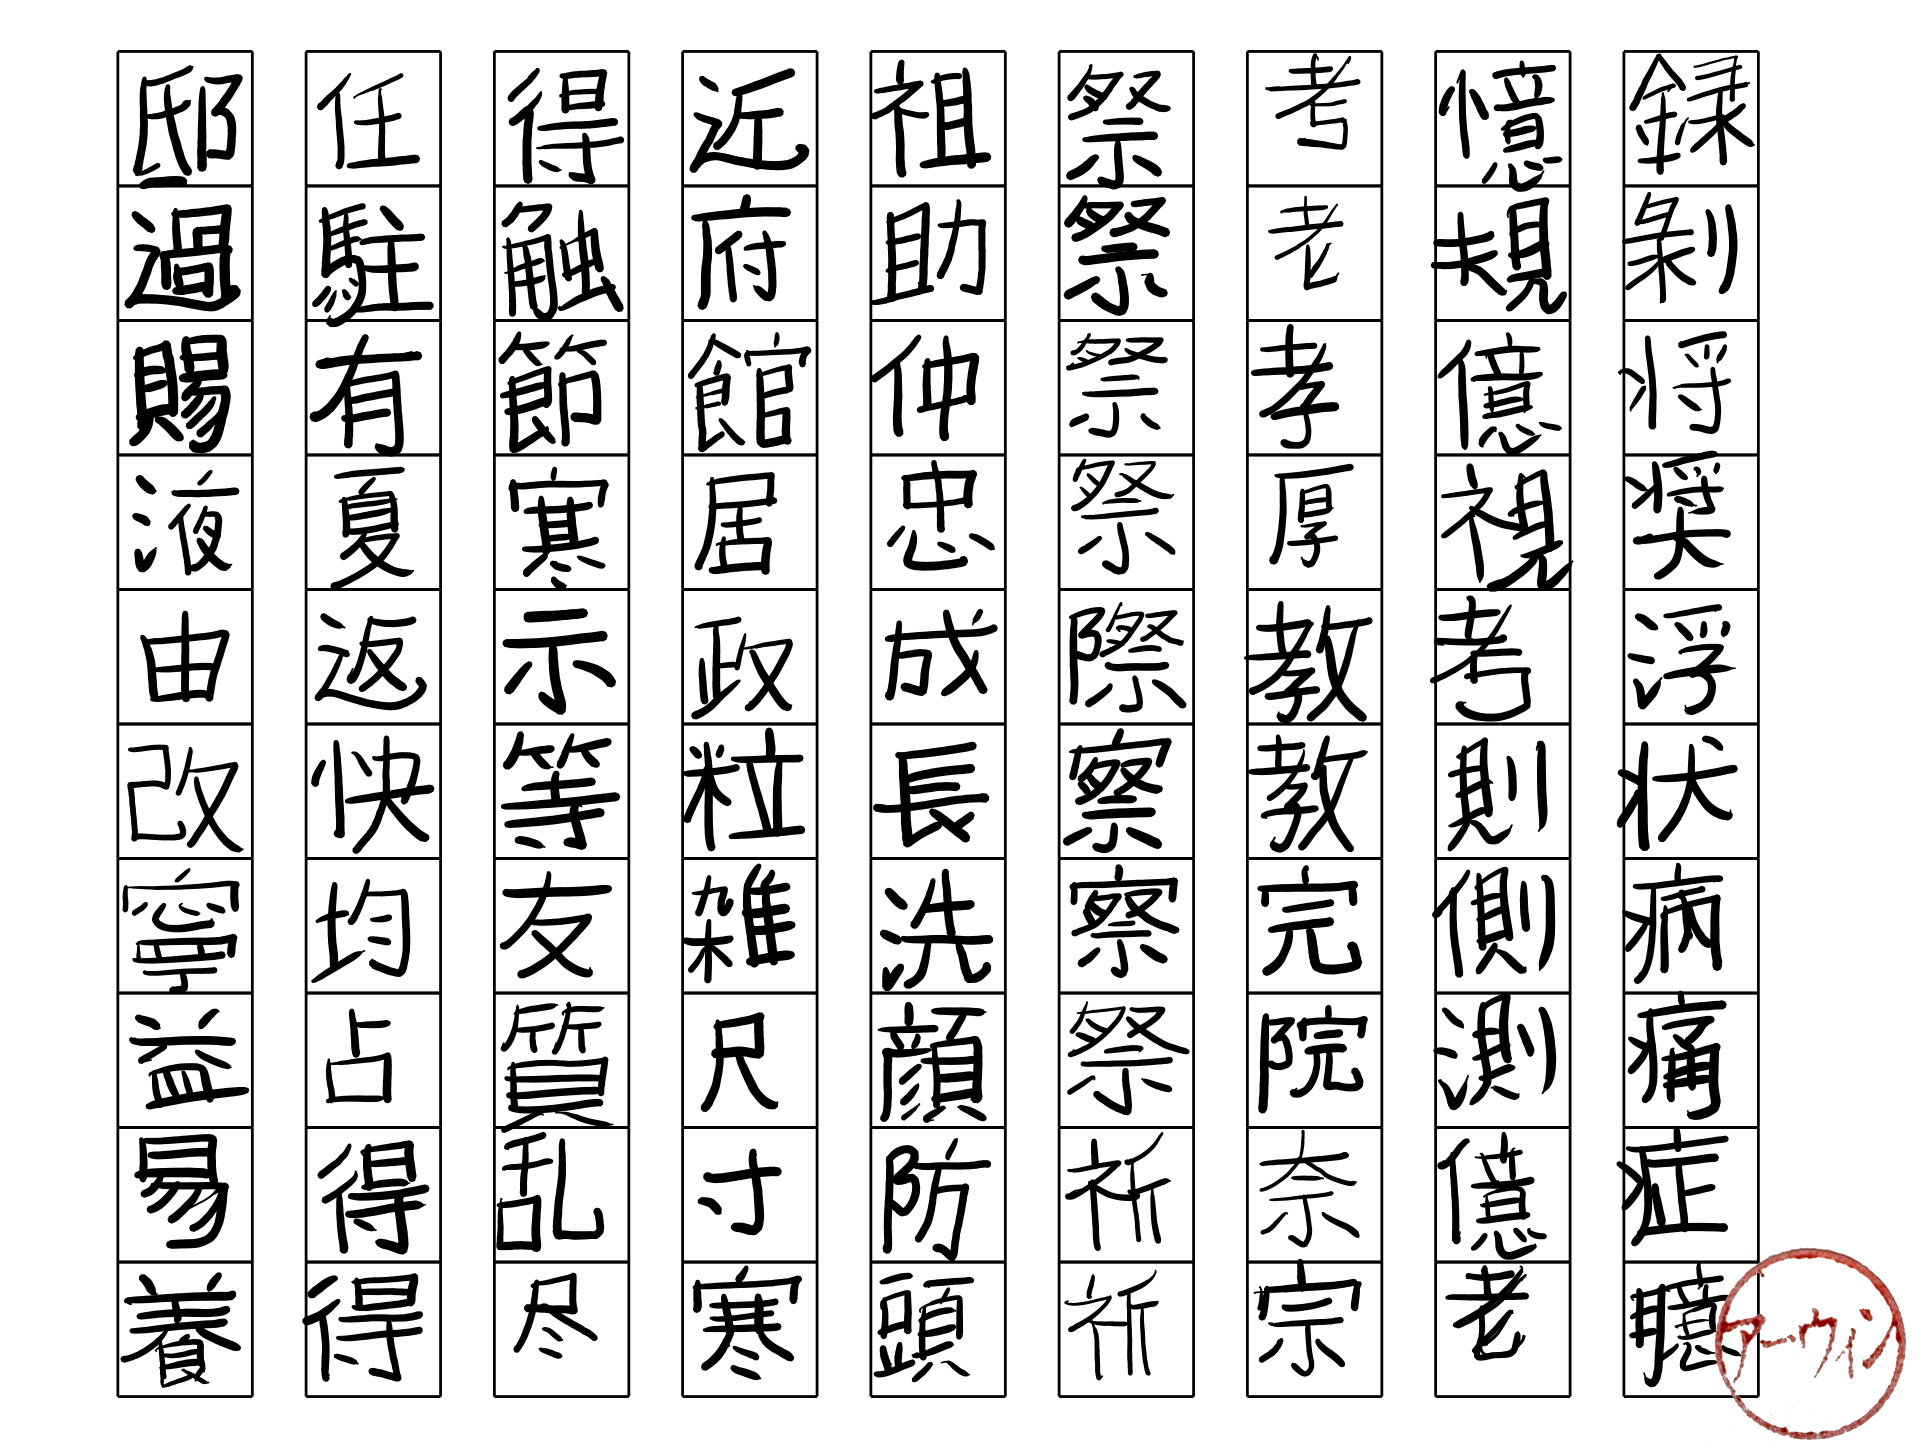 録剝将奨浮状病痛症臆
憶規億視考則側測億老
考老孝厚教教完院奈宗
祭祭祭祭際察察祭祈祈
祖助仲忠成長洗顔防頭
近府館居政粒雑尺寸寒
得触節寒示等友質乱尽
任駐有夏返快均占得得
邸過賜液由改寧益易養
アーウィン